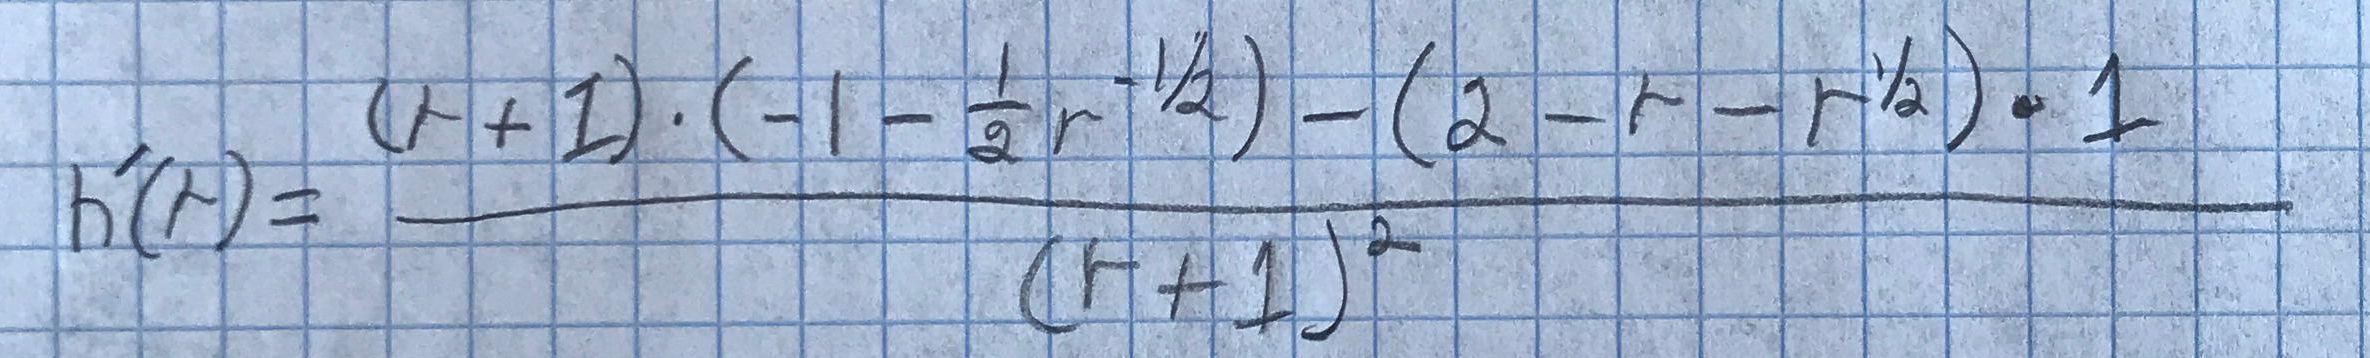 h'(r) = \frac{(r+1) \cdot (-1 - \frac{1}{2} r^{-1/2}) - (2 - r - r^{1/2}) \cdot 1}{(r+1)^2}